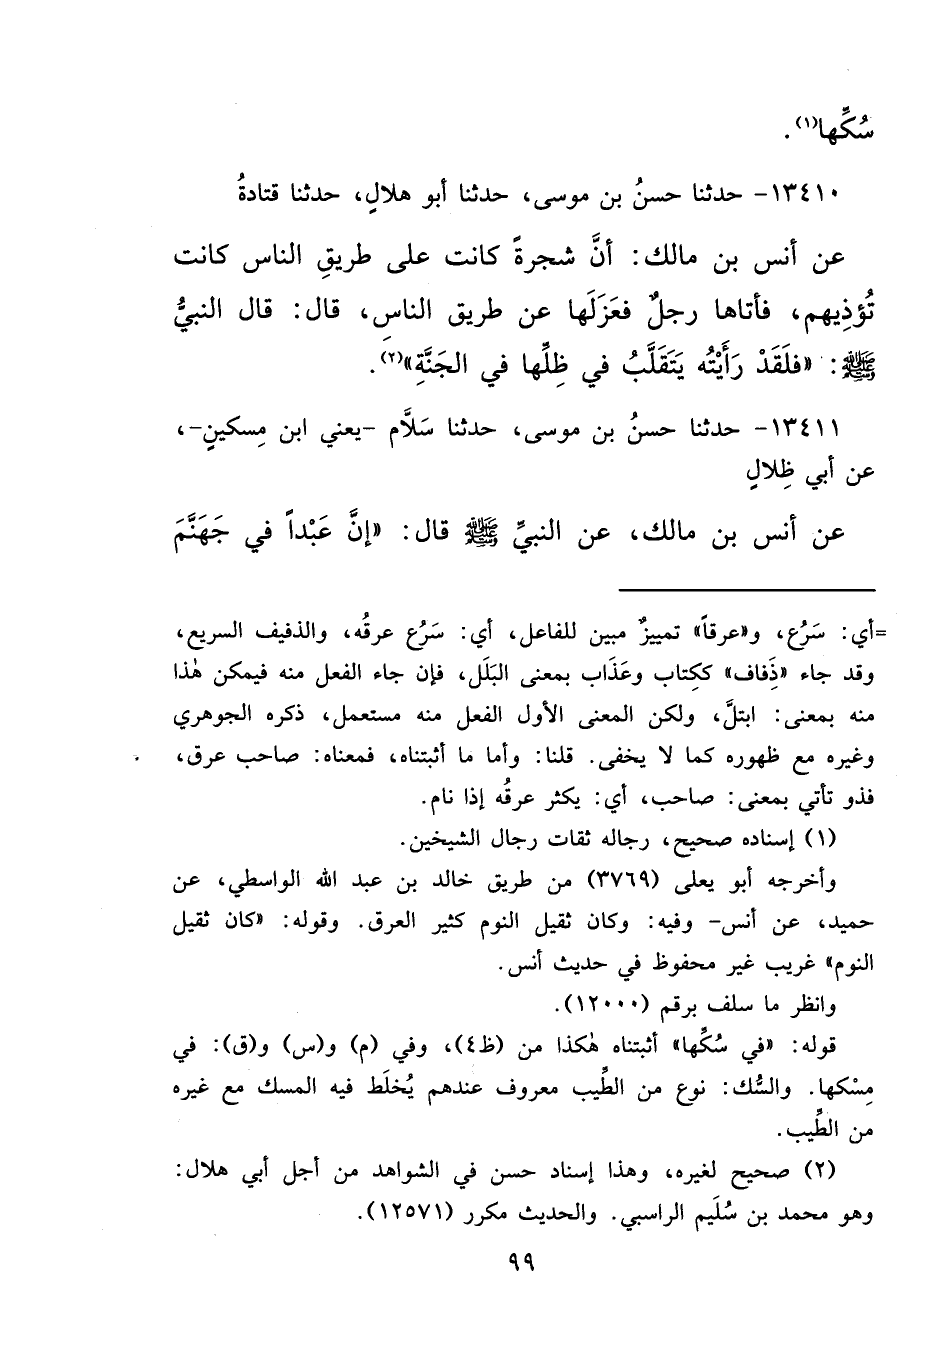 سُكِّها(١).
١٣٤١٠- حدثنا حسنُ بن موسى، حدثنا أبو هلالٍ، حدثنا قتادةُ
عن أنس بن مالك: أنَّ شجرةً كانت على طريقِ الناس كانت
تُؤذِيهم، فأتاها رجلٌ فعَزَلَها عن طريق الناسِ، قال: قال النبيُّ
ﷺ: «فلَقَدْ رَأَيْتُه يَتَقَلَّبُ في ظِلِّها في الجَنَّةِ»(٢).
١٣٤١١- حدثنا حسنُ بن موسى، حدثنا سَلاَّم -يعني ابن مِسكينٍ-،
عن أبي ظِلالٍ
عن أنس بن مالك، عن النبيِّ ﷺ قال: «إنَّ عَبْداً في جَهَنَّمَ
=أي: سَرُع، و«عرقاً» تمييزٌ مبين للفاعل، أي: سَرُع عرقُه، والذفيف السريع،
وقد جاء «ذِفاف» ككِتاب وعَذَاب بمعنى البَلَل، فإن جاء الفعل منه فيمكن هٰذا
منه بمعنى: ابتلَّ، ولكن المعنى الأول الفعل منه مستعمل، ذكره الجوهري
وغيره مع ظهوره كما لا يخفى. قلنا: وأما ما أثبتناه، فمعناه: صاحب عرق،
فذو تأتي بمعنى: صاحب، أي: يكثر عرقُه إذا نام.
(١) إسناده صحيح، رجاله ثقات رجال الشيخين.
وأخرجه أبو يعلى (٣٧٦٩) من طريق خالد بن عبد الله الواسطي، عن
حميد، عن أنس- وفيه: وكان ثقيل النوم كثير العرق. وقوله: «كان ثقيل
النوم» غريب غير محفوظ في حديث أنس.
وانظر ما سلف برقم (١٢٠٠٠).
قوله: «في سُكِّها» أثبتناه هٰكذا من (ظ٤)، وفي (م) و(س) و(ق): في
مِسْكها. والسُّك: نوع من الطِّيب معروف عندهم يُخلَط فيه المسك مع غيره
من الطِّيب.
(٢) صحيح لغيره، وهذا إسناد حسن في الشواهد من أجل أبي هلال:
وهو محمد بن سُلَيم الراسبي. والحديث مكرر (١٢٥٧١).
٩٩